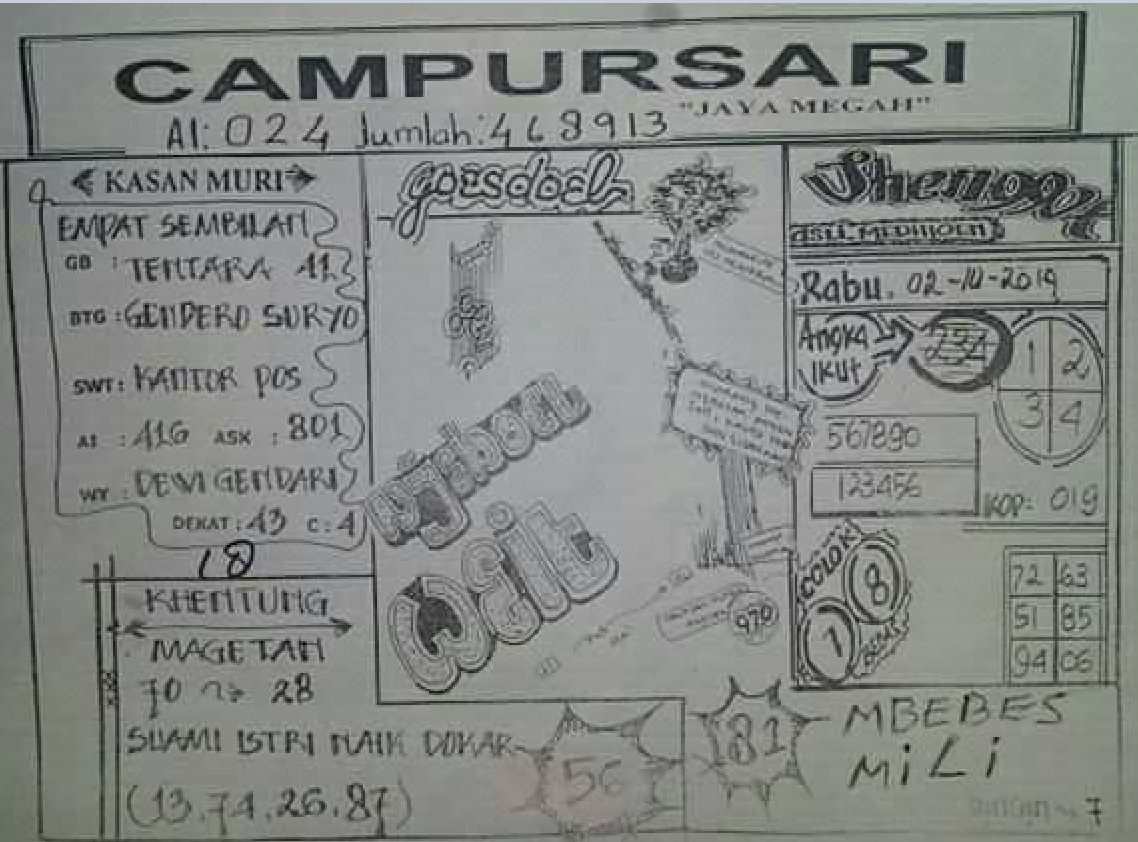 CAMPURSARI
"JAYA MEGAH"
AI: 024 Jumlah: 468913
KASAN MURI
EMPAT SEMBILAN
GB : TENTARA 41
BTG : GENDERO SURYO
SWT : KANTOR POS
AI : 416 ASK : 801
WY : DEWI GENDARI
DEKAT : 43 C : 4
18
KHENTUNG
MAGETAN
70 28
SUAMI ISTRI NAIK DOKAR
(13.74.26.87)
56
970
Rabu. 02-10-2019
Angka
IKUt
234
1 2
3 4
567890
123456
KOP: 019
COLOK
8
1
72 63
51 85
94 06
81
MBEBES
MiLi
7